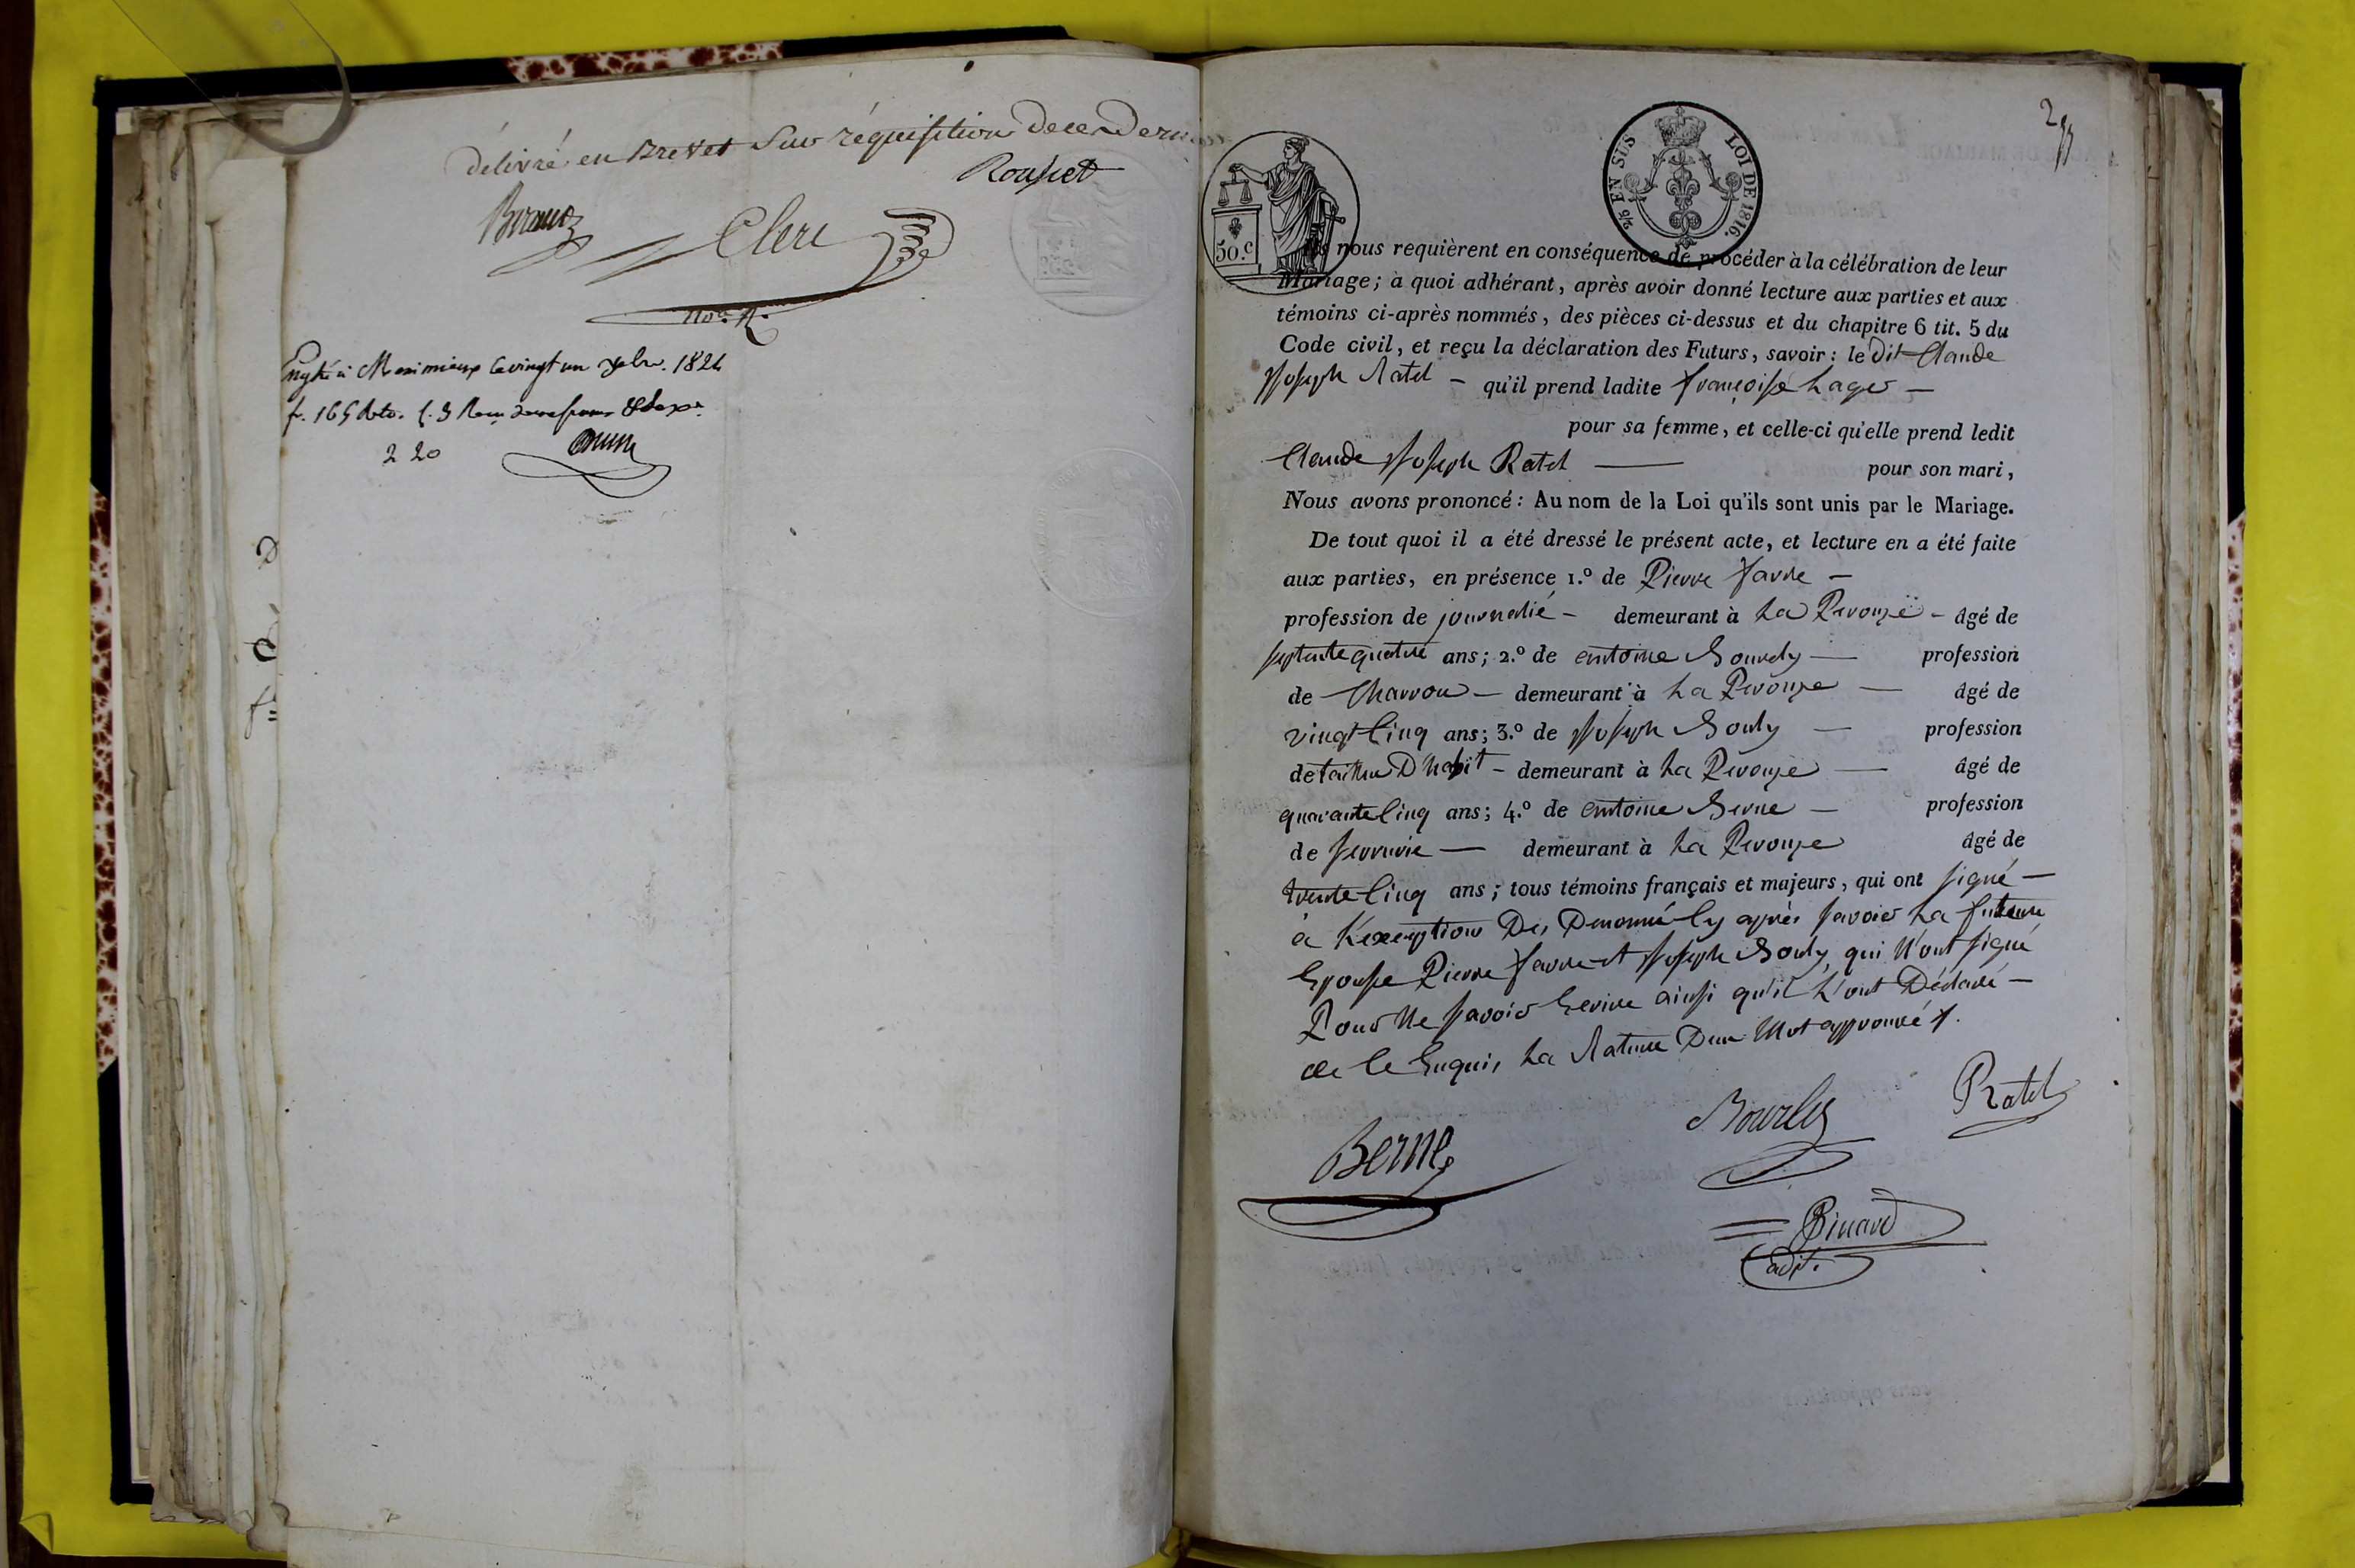 délivré en Brevet Sur réquisition de ce Dernier
Rousset
Clerc
no.re
Engtré à Meximieux le vingt un 7bre. 1824
f. 165 Rto. C. 3 Reçu deux francs
2 20
50.c
2/5 EN SUS LOI DE 1816.
Ils nous requièrent en conséquence de procéder à la célébration de leur
Mariage; à quoi adhérant, après avoir donné lecture aux parties et aux
témoins ci-après nommés, des pièces ci-dessus et du chapitre 6 tit. 5 du
Code civil, et reçu la déclaration des Futurs, savoir: le Dit Claude
Joseph Ratel — qu'il prend ladite françoise Lager —
pour sa femme, et celle-ci qu'elle prend ledit
Claude Joseph Ratel — pour son mari,
Nous avons prononcé: Au nom de la Loi qu'ils sont unis par le Mariage.
De tout quoi il a été dressé le présent acte, et lecture en a été faite
aux parties, en présence 1.º de Pierre favre —
profession de journalié — demeurant à La Perouze — âgé de
septente quatre ans; 2.º de entoine Bourdy — profession
de Charron — demeurant à La Perouze — âgé de
vingt Cinq ans; 3.º de Joseph Bouly — profession
de tailleur D'habit — demeurant à La Perouze — âgé de
quarante Cinq ans; 4.º de entoine Berne — profession
de serrurie — demeurant à La Perouze âgé de
trente Cinq ans; tous témoins français et majeurs, qui ont signé —
à L'exeption Des Denomé Cy après savoir La future
Epouse Pierre favre et Joseph Bouly qui N'ont signé
Pour Ne savoir Ecrire ainsi qu'il L'ont Déclaré —
de Ce Enquis La Rature Dun Mot approuvé
Berne
Bourdy
Ratel
Pinard
adjt.